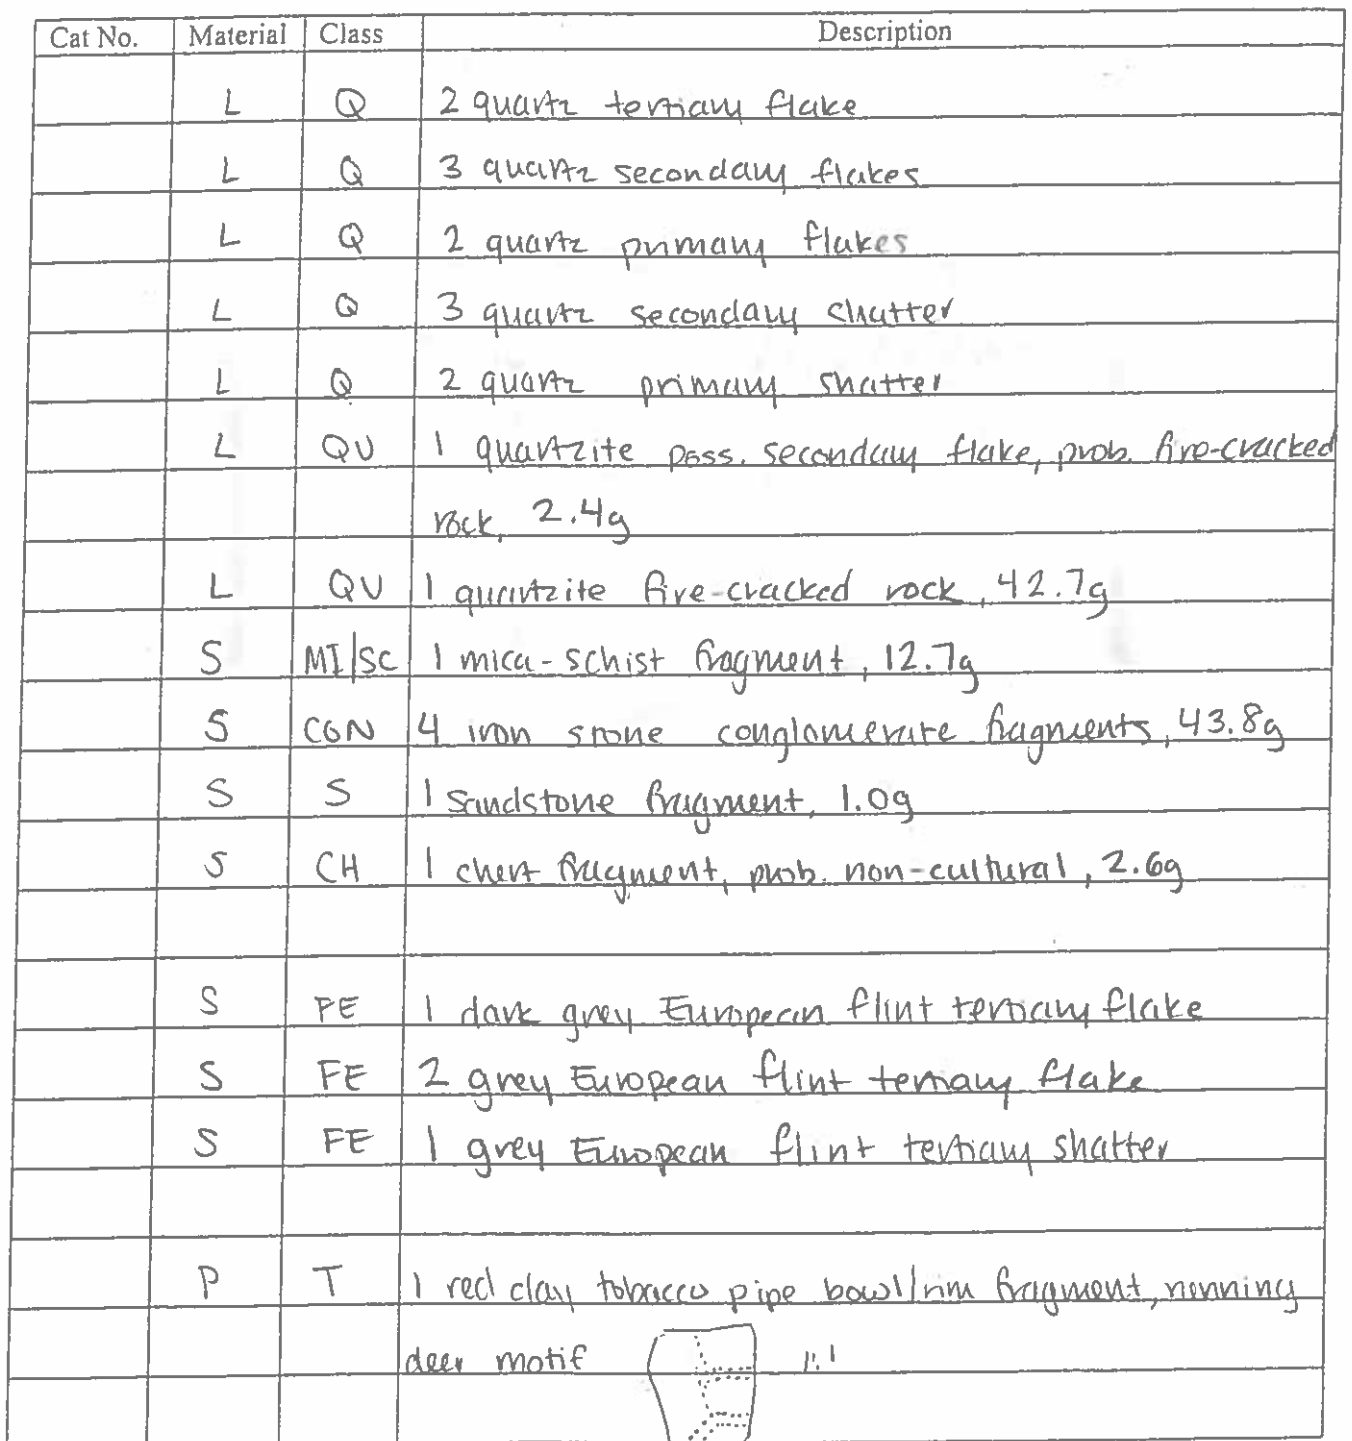 Cat No. Material Class Description
L Q 2 quartz tertiary flake
L Q 3 quartz secondary flakes
L Q 2 quartz primary flakes
L Q 3 quartz secondary shatter
L Q 2 quartz primary shatter
L QU 1 quartzite poss. secondary flake, prob. fire-cracked
rock, 2.4g
L QU 1 quartzite fire-cracked rock, 42.7g
S MI/SC 1 mica-schist fragment, 12.7g
S CON 4 iron stone conglomerate fragments, 43.8g
S S 1 sandstone fragment, 1.0g
S CH 1 chert fragment, prob. non-cultural, 2.6g
S FE 1 dark grey European flint tertiary flake
S FE 2 grey European flint tertiary flake
S FE 1 grey European flint tertiary shatter
P T 1 red clay tobacco pipe bowl/rim fragment, running
deer motif 1:1